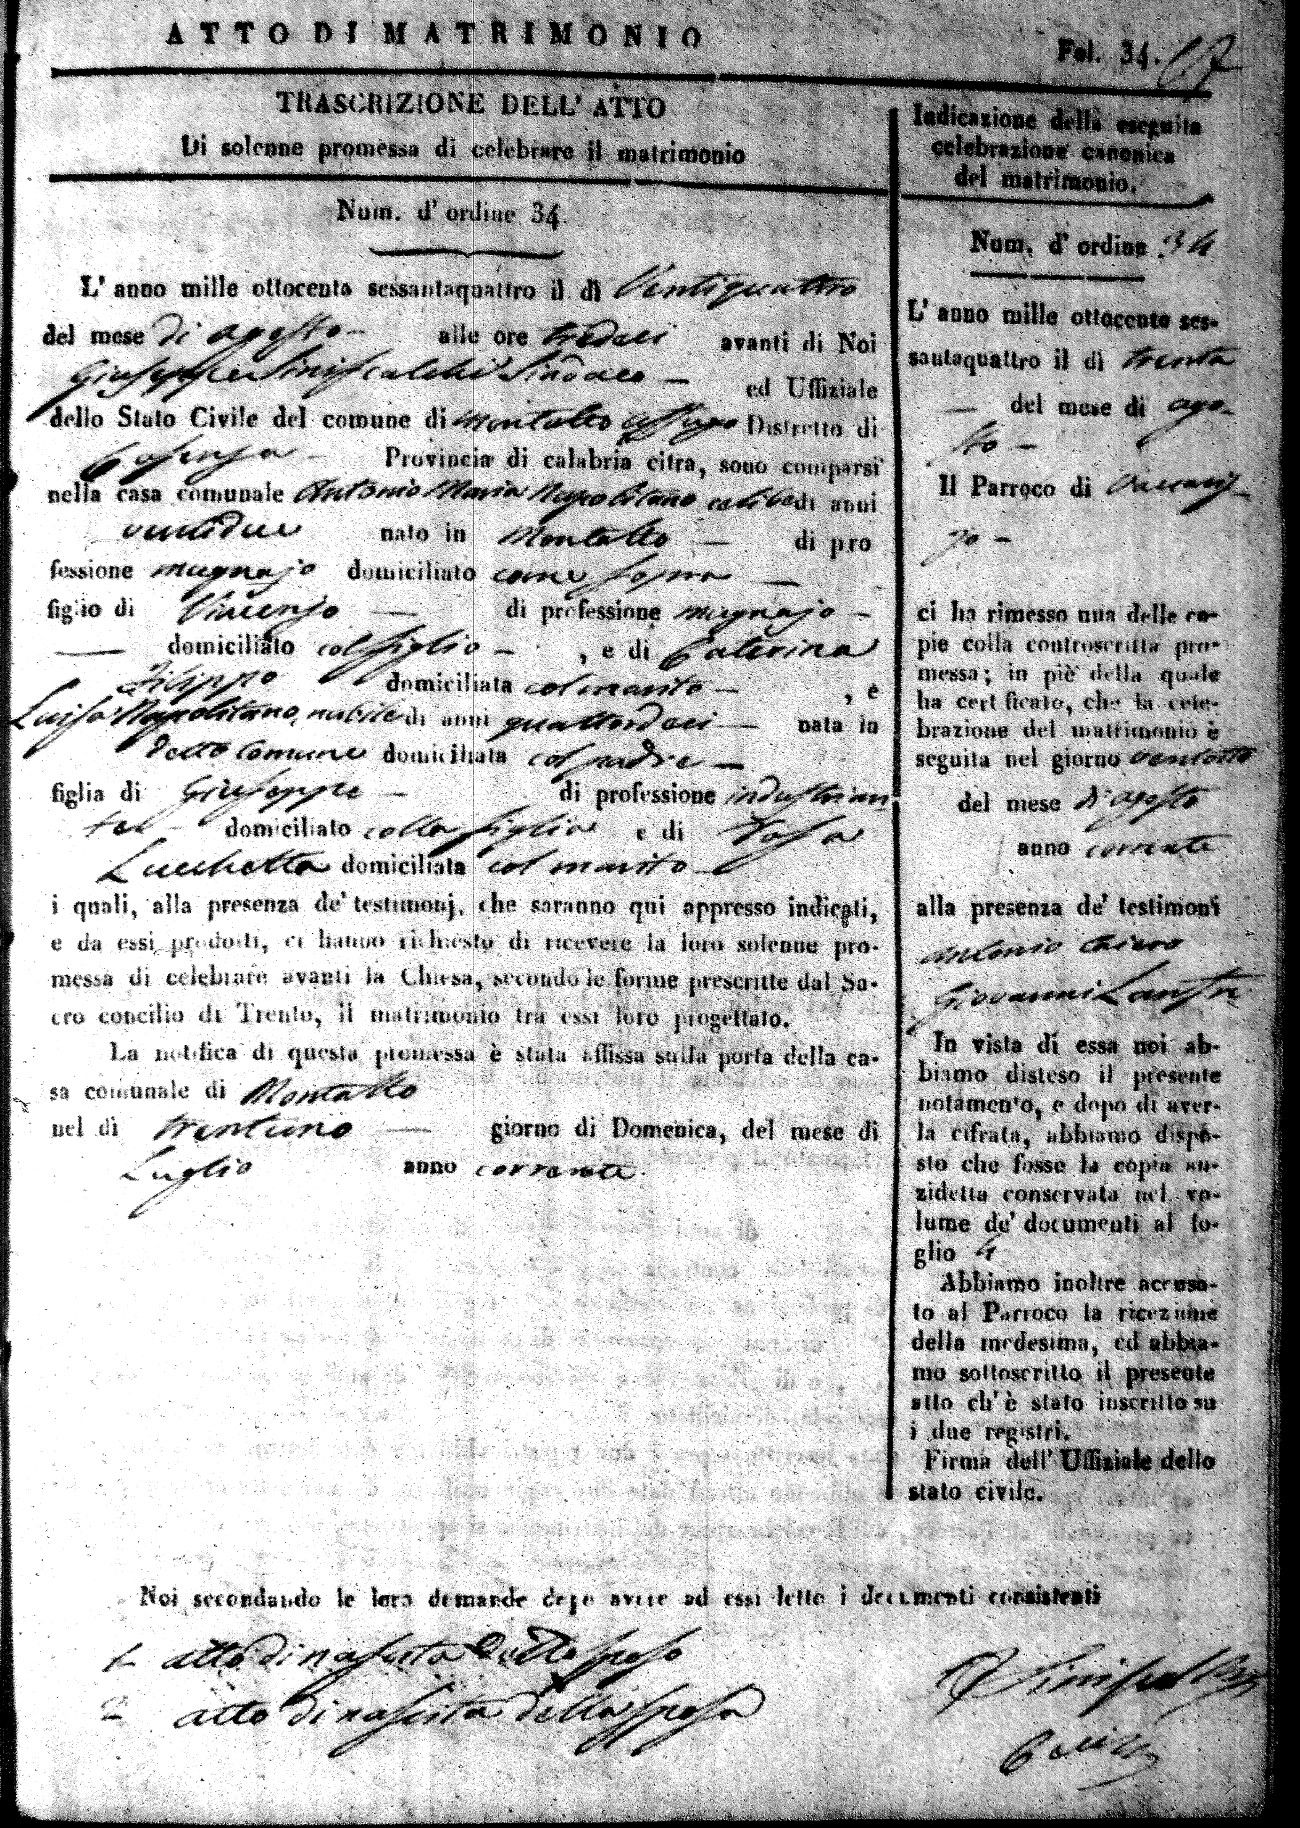 ATTO DI MATRIMONIO
Fol. 34. 67
TRASCRIZIONE DELL' ATTO
Di solenne promessa di celebrare il matrimonio
Num. d' ordine 34.
L' anno mille ottocento sessantaquattro il dì Ventiquattro
del mese di agosto alle ore tredeci avanti di Noi
Giuseppe Siniscalchi Sindaco ed Uffiziale
dello Stato Civile del comune di Montalto Uffugo Distretto di
Cosenza Provincia di calabria citra, sono comparsi
nella casa comunale Antonio Maria Napolitano celibe di anni
ventidue nato in Montalto di pro
fessione mugnajo domiciliato come sopra
figlio di Vincenzo di professione mugnajo
domiciliato col figlio , e di Caterina
Filippo domiciliata col marito , e
Luisa Napolitano, nubile di anni quattordeci nata in
detto Comune domiciliata col padre
figlia di Giuseppe di professione
domiciliato colla figlia e di Rosa
Lucchetta domiciliata col marito
i quali, alla presenza de' testimonj, che saranno qui appresso indicati,
e da essi prodotti, ci hanno richiesto di ricevere la loro solenne pro-
messa di celebrare avanti la Chiesa, secondo le forme prescritte dal Sa-
cro concilio di Trento, il matrimonio tra essi loro progettato.
La notifica di questa promessa è stata affissa sulla porta della ca-
sa comunale di Montalto
nel dì trentuno giorno di Domenica, del mese di
Luglio anno corrente.
Indicazione della eseguita
celebrazione canonica
del matrimonio.
Num. d' ordine 34
L' anno mille ottocento ses-
santaquattro il di trenta
del mese di ago-
sto
Il Parroco di
ci ha rimesso una delle co-
pie colla controscritta pro-
messa; in piè della quale
ha certificato, che la cele-
brazione del matrimonio è
seguita nel giorno ventotto
del mese di agosto
anno corrente
alla presenza de' testimoni
Antonio Chiaro
Giovanni
In vista di essa noi ab-
biamo disteso il presente
notamento, e dopo di aver-
la cifrata, abbiamo dispo-
sto che fosse la copia an-
zidetta conservata nel vo-
lume de' documenti al fo-
glio 4
Abbiamo inoltre accusa-
to al Parroco la ricezione
della medesima, ed abbia-
mo sottoscritto il presente
atto ch' è stato inscritto su
i due registri.
Firma dell' Uffiziale dello
stato civile.
Noi secondando le loro domande dopo avere ad essi letto i documenti consistenti
1 atto di nascita dello sposo
2 atto di nascita della sposa